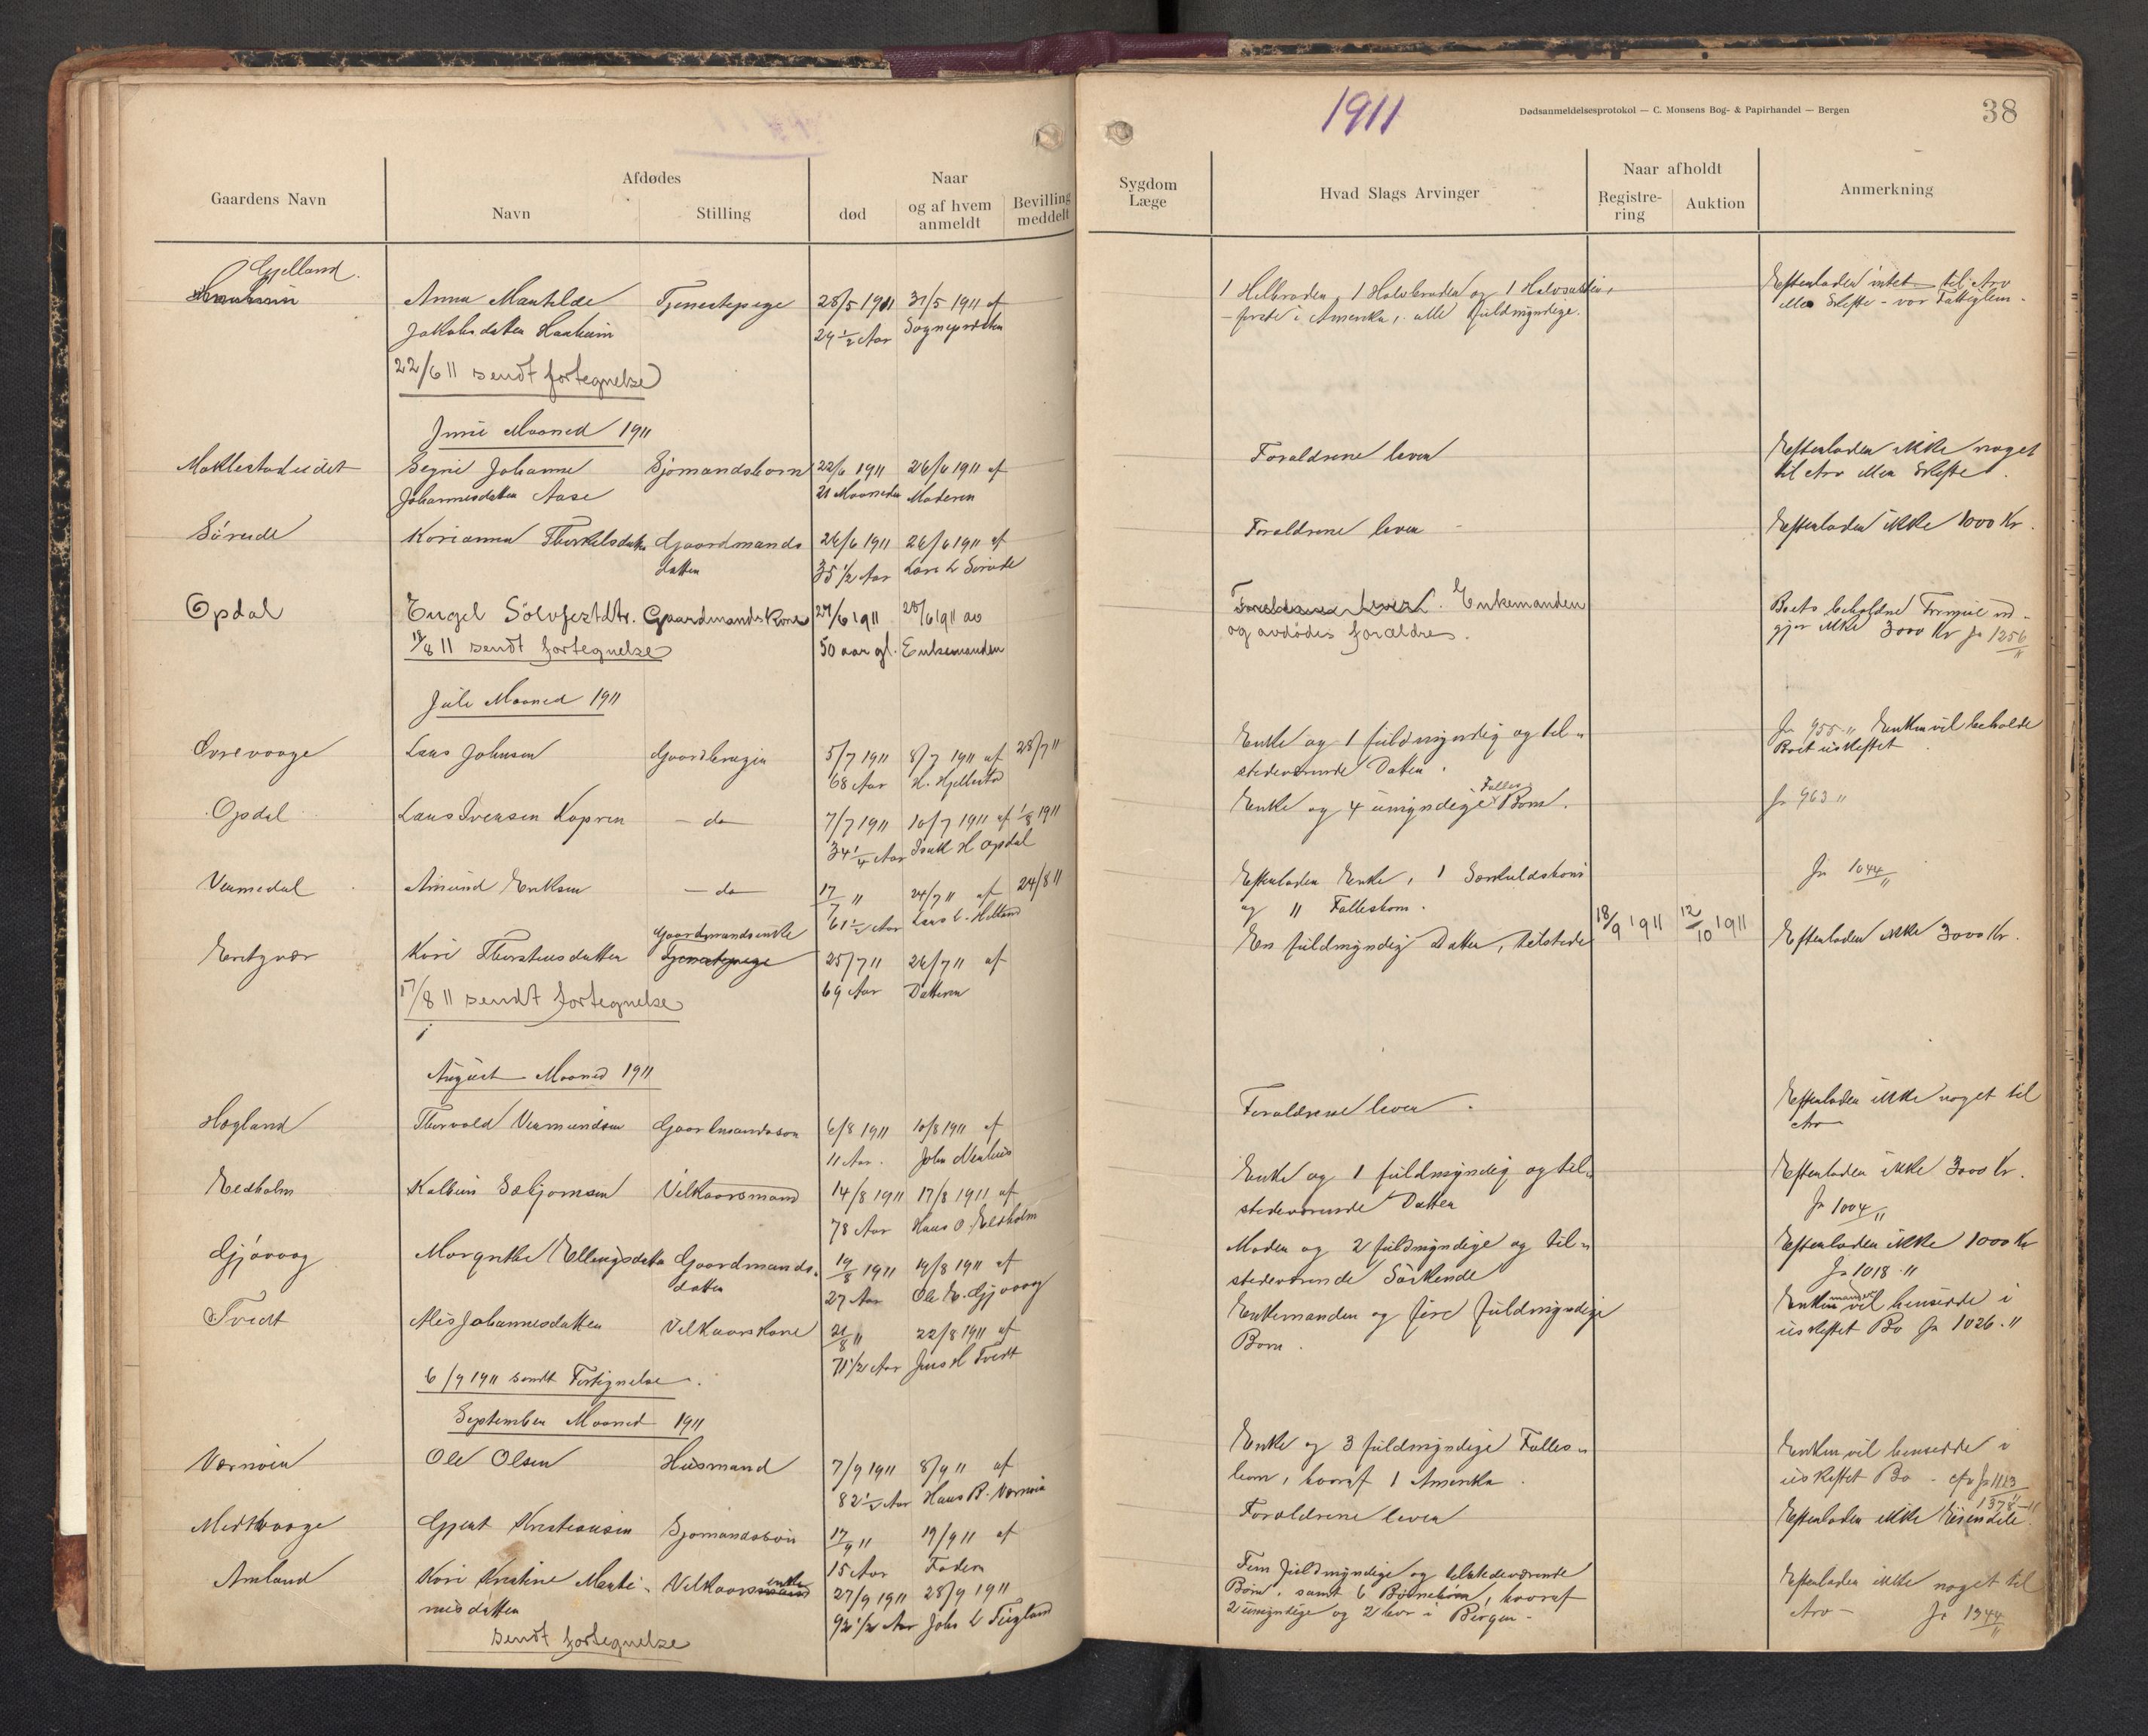 1911
Dødsanmeldelsesprotokol — C. Monsens Bog- & Papirhandel — Bergen
38
Gaardens Navn
Afdødes
Navn
Stilling
Naar
død
og af hvem
anmeldt
Bevilling
meddelt
Sygdom
Læge
Hvad Slags Arvinger
Naar afholdt
Registre-
ring
Auktion
Anmerkning
Anna Mathilde Tjenestepige 28/5 1911 31/5 1911 af
Jakobsdatter Haaheim 24 1/2 Aar Sognepresten
1 Helbroder, 1 Halvbroder og 1 Halvsøster,
i Amerika, alle fuldmyndige.
Efterlader intet til Arv
eller Skifte - var Fattiglem.
22/6 11 sendt fortegnelse
Juni Maaned 1911
Signe Johanne Sjömandsbarn 22/6 1911 26/6 1911 af
Johannesdatter Aase 21 Maaneder Moderen
Forældrene lever
Efterlader ikke noget
til Arv eller Skifte.
Thorkelsdatter Gaardmands 26/6 1911 26/6 1911 af
datter 35 1/2 Aar
Forældrene lever
Efterlader ikke 1000 Kr.
Opdal Engel Sölvfestdtr. Gaardmandskone 27/6 1911 28/6 1911 av
50 aar gl. Enkemanden
Forældrene lever. Enkemanden
og avdödes forældre.
Boets beholdne Formue ud-
gjør ikke 3000 Kr Jr 1256/11
17/8 11 sendt fortegnelse
Juli Maaned 1911
Lars Johnsen Gaardbruger 5/7 1911 8/7 1911 af 28/7 11
68 Aar
Enke og 1 fuldmyndig og til-
stedeværende Datter.
Jr 955 11 Enken vil beholde
Boet uskiftet
Opdal Lars Iversen - do - 7/7 1911 10/7 1911 af 1/8 1911
34 1/4 Aar Isak H Opdal
Enke og 4 umyndige Fælles Børn.
Jr 963 11
Amund Eriksen - do - 17/7 11 24/7 11 af 24/8 11
61 1/2 Aar
Efterlader Enke, 1 Særkuldsbarn
og 11 Fællesbarn.
Jr 1044/11
Kari Thorsteinsdatter Gaardmandsenke
Tjenestepige 25/7 11 26/7 11 af
69 Aar Datteren
En fuldmyndig Datter, tilstede
18/9 1911 12/10 1911
Efterlader ikke 3000 Kr.
17/8 11 sendt fortegnelse
August Maaned 1911
Høgland Thorvald Gaardmandssøn 6/8 1911 10/8 1911 af
11 Aar. John
Forældrene lever.
Efterlader ikke noget til
Arv
Eldholm Vilkaarsmand 14/8 1911 17/8 1911 af
78 Aar Hans O. Eldholm
Enke og 1 fuldmyndig og til-
stedeværende Datter
Efterlader ikke 3000 Kr.
Jr 1004/11
Gjövaag Margrethe Ellingsdatter Gaardmands- 19/8 1911 19/8 1911 af
datter 27 Aar Ole E. Gjövaag
Moder og 2 fuldmyndige og til-
stedeværende Söskende
Efterlader ikke 1000 Kr
Jr 1018 11
Tvedt Johannesdatter Vilkaarskone 21/8 11 22/8 1911 af
71 1/2 Aar Jens H Tvedt
Enkemanden og fire fuldmyndige
Børn.
Enkemanden vil hensidde i
uskiftet Bo Jr 1026. 11
6/9 1911 sendt Fortegnelse.
September Maaned 1911
Ole Olsen Husmand 7/9 1911 8/9 11 af
82 1/2 Aar Hans B.
Enke og 3 fuldmyndige Fælles-
børn, hvoraf 1 Amerika.
Enken vil hensidde i
uskiftet Bo - cfr Jr 1113
1378-11
Gjert Kristiansen 17/9 11 19/9 11 af
15 Aar Faderen
Forældrene lever
Efterlader ikke Eiendele.
Kari Kristine Vilkaarsenke 27/9 1911 28/9 1911
92 1/2 Aar John L
Fem fuldmyndige og tilstedeværende
Børn, samt 6 Børnebörn, hvoraf
2 umyndige og 2 bor i Bergen.
Efterlader ikke noget til
Arv - Jr 1344/11
sendt fortegnelse